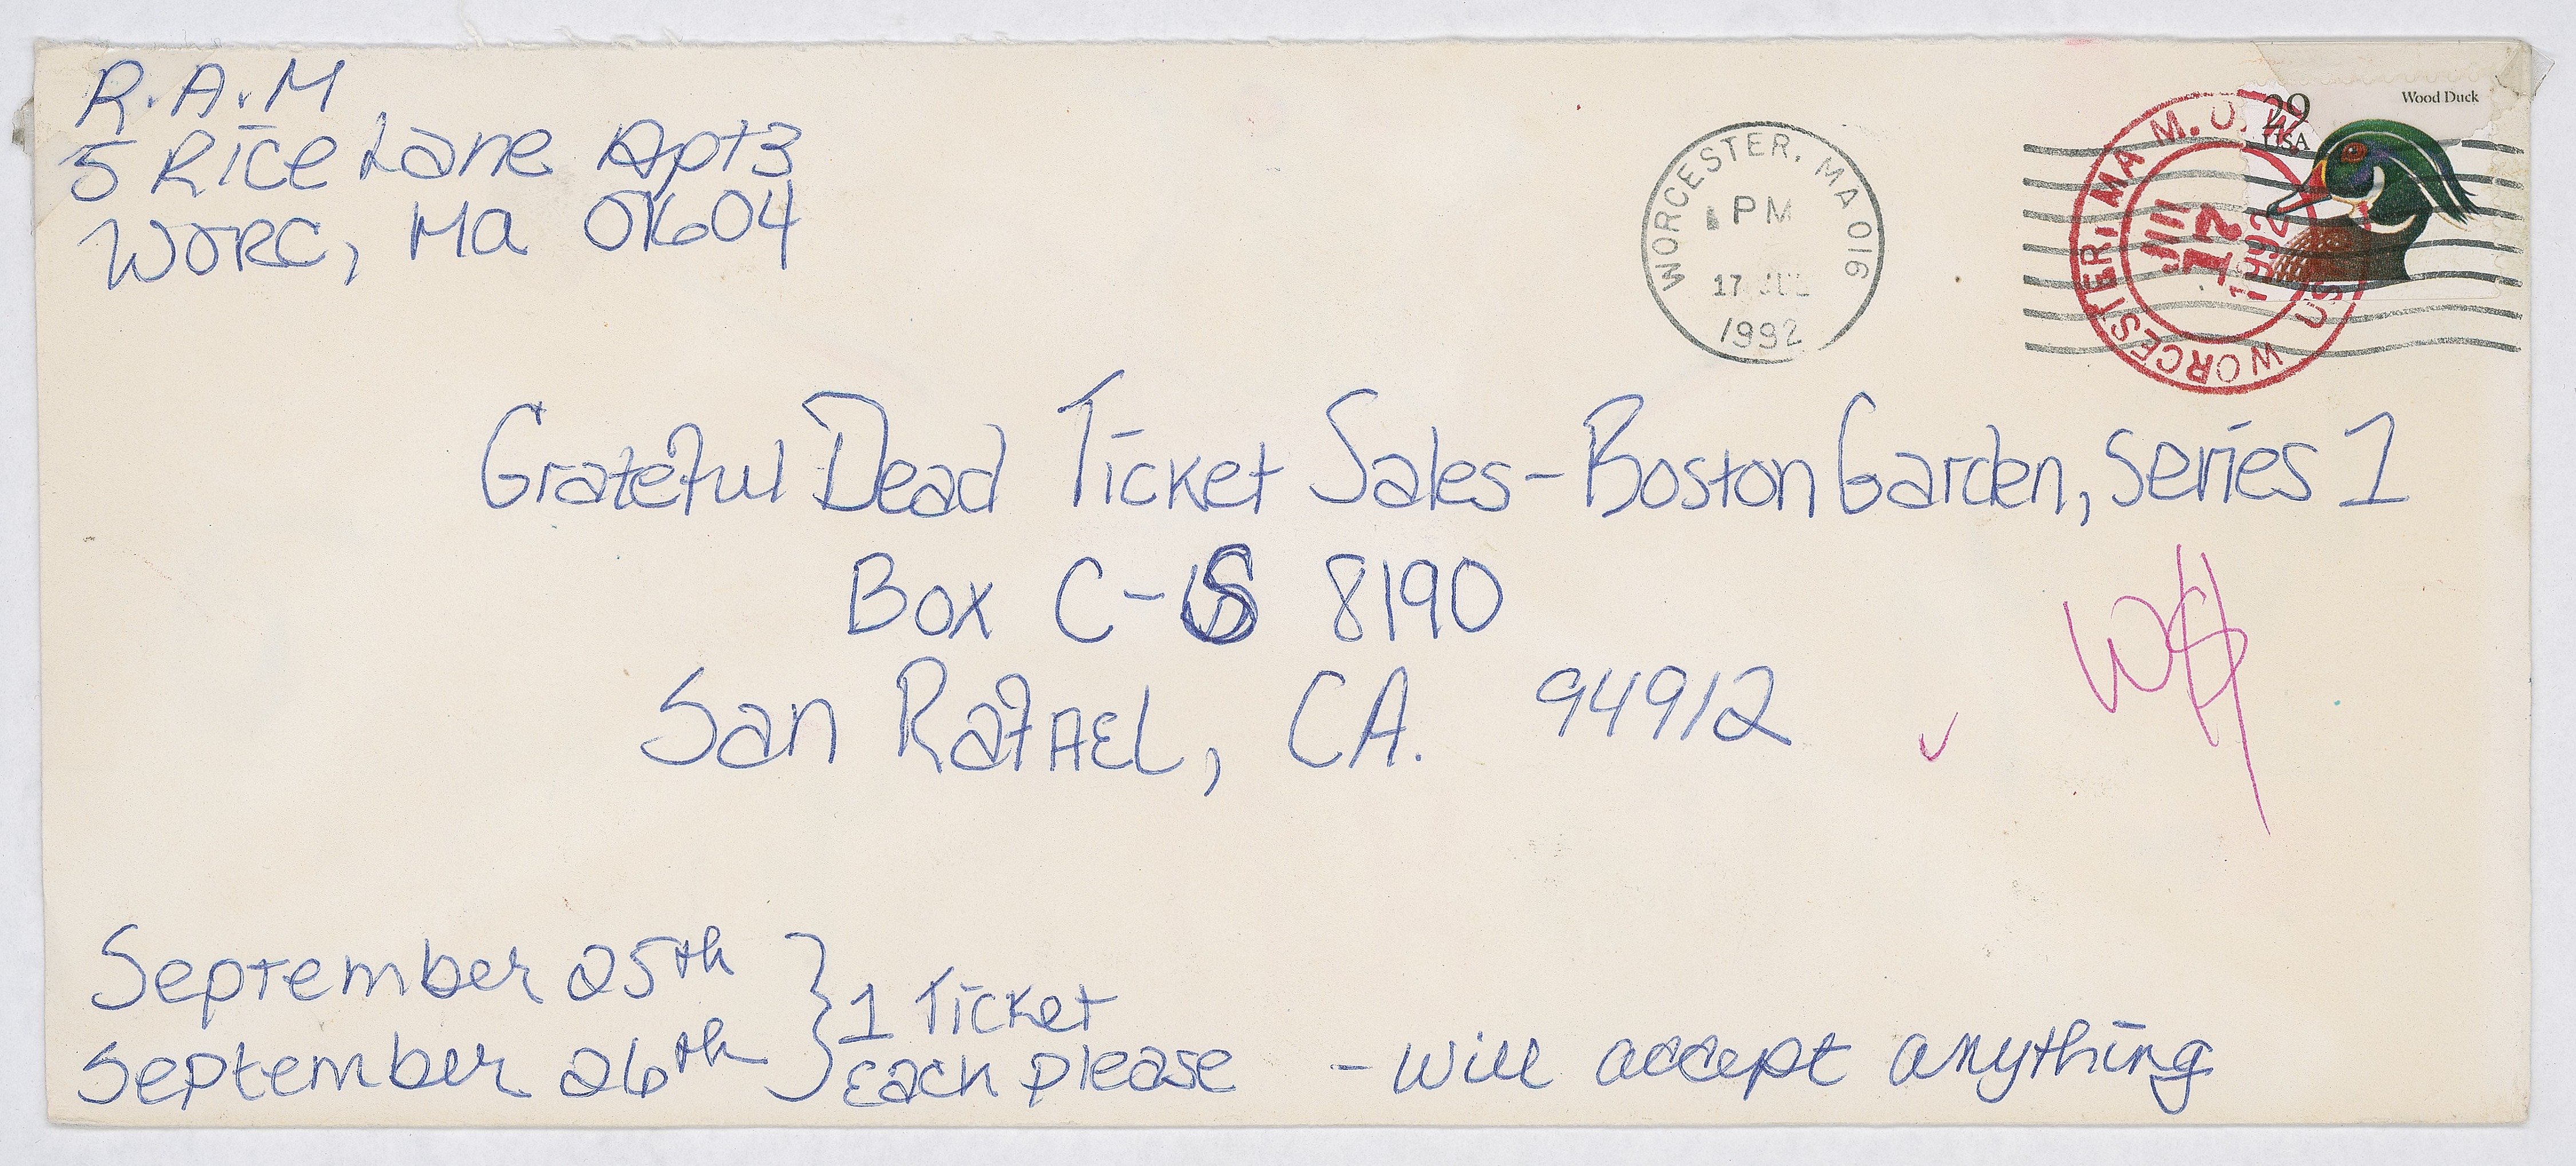 R.A.M
5 Rice Lane Apt 3
Worc, Ma 01604
WORCESTER, MA 016
PM
17 JUL
1992
29
USA
Wood Duck
WORCESTER MA M.O.W.
JUL
1992
US
Grateful Dead Ticket Sales - Boston Garden, Series 1
Box C-S 8190
San Rafael, CA. 94912
September 25th
September 26th } 1 Ticket
Each please - will accept anything